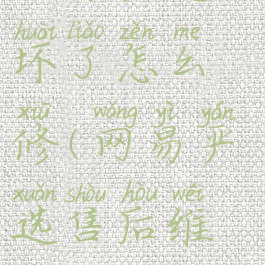 huài liǎo zěn me
坏了怎么
xiū wǎng yì yán
修(网易严
xuǎn shòu hòu wéi
选售后维